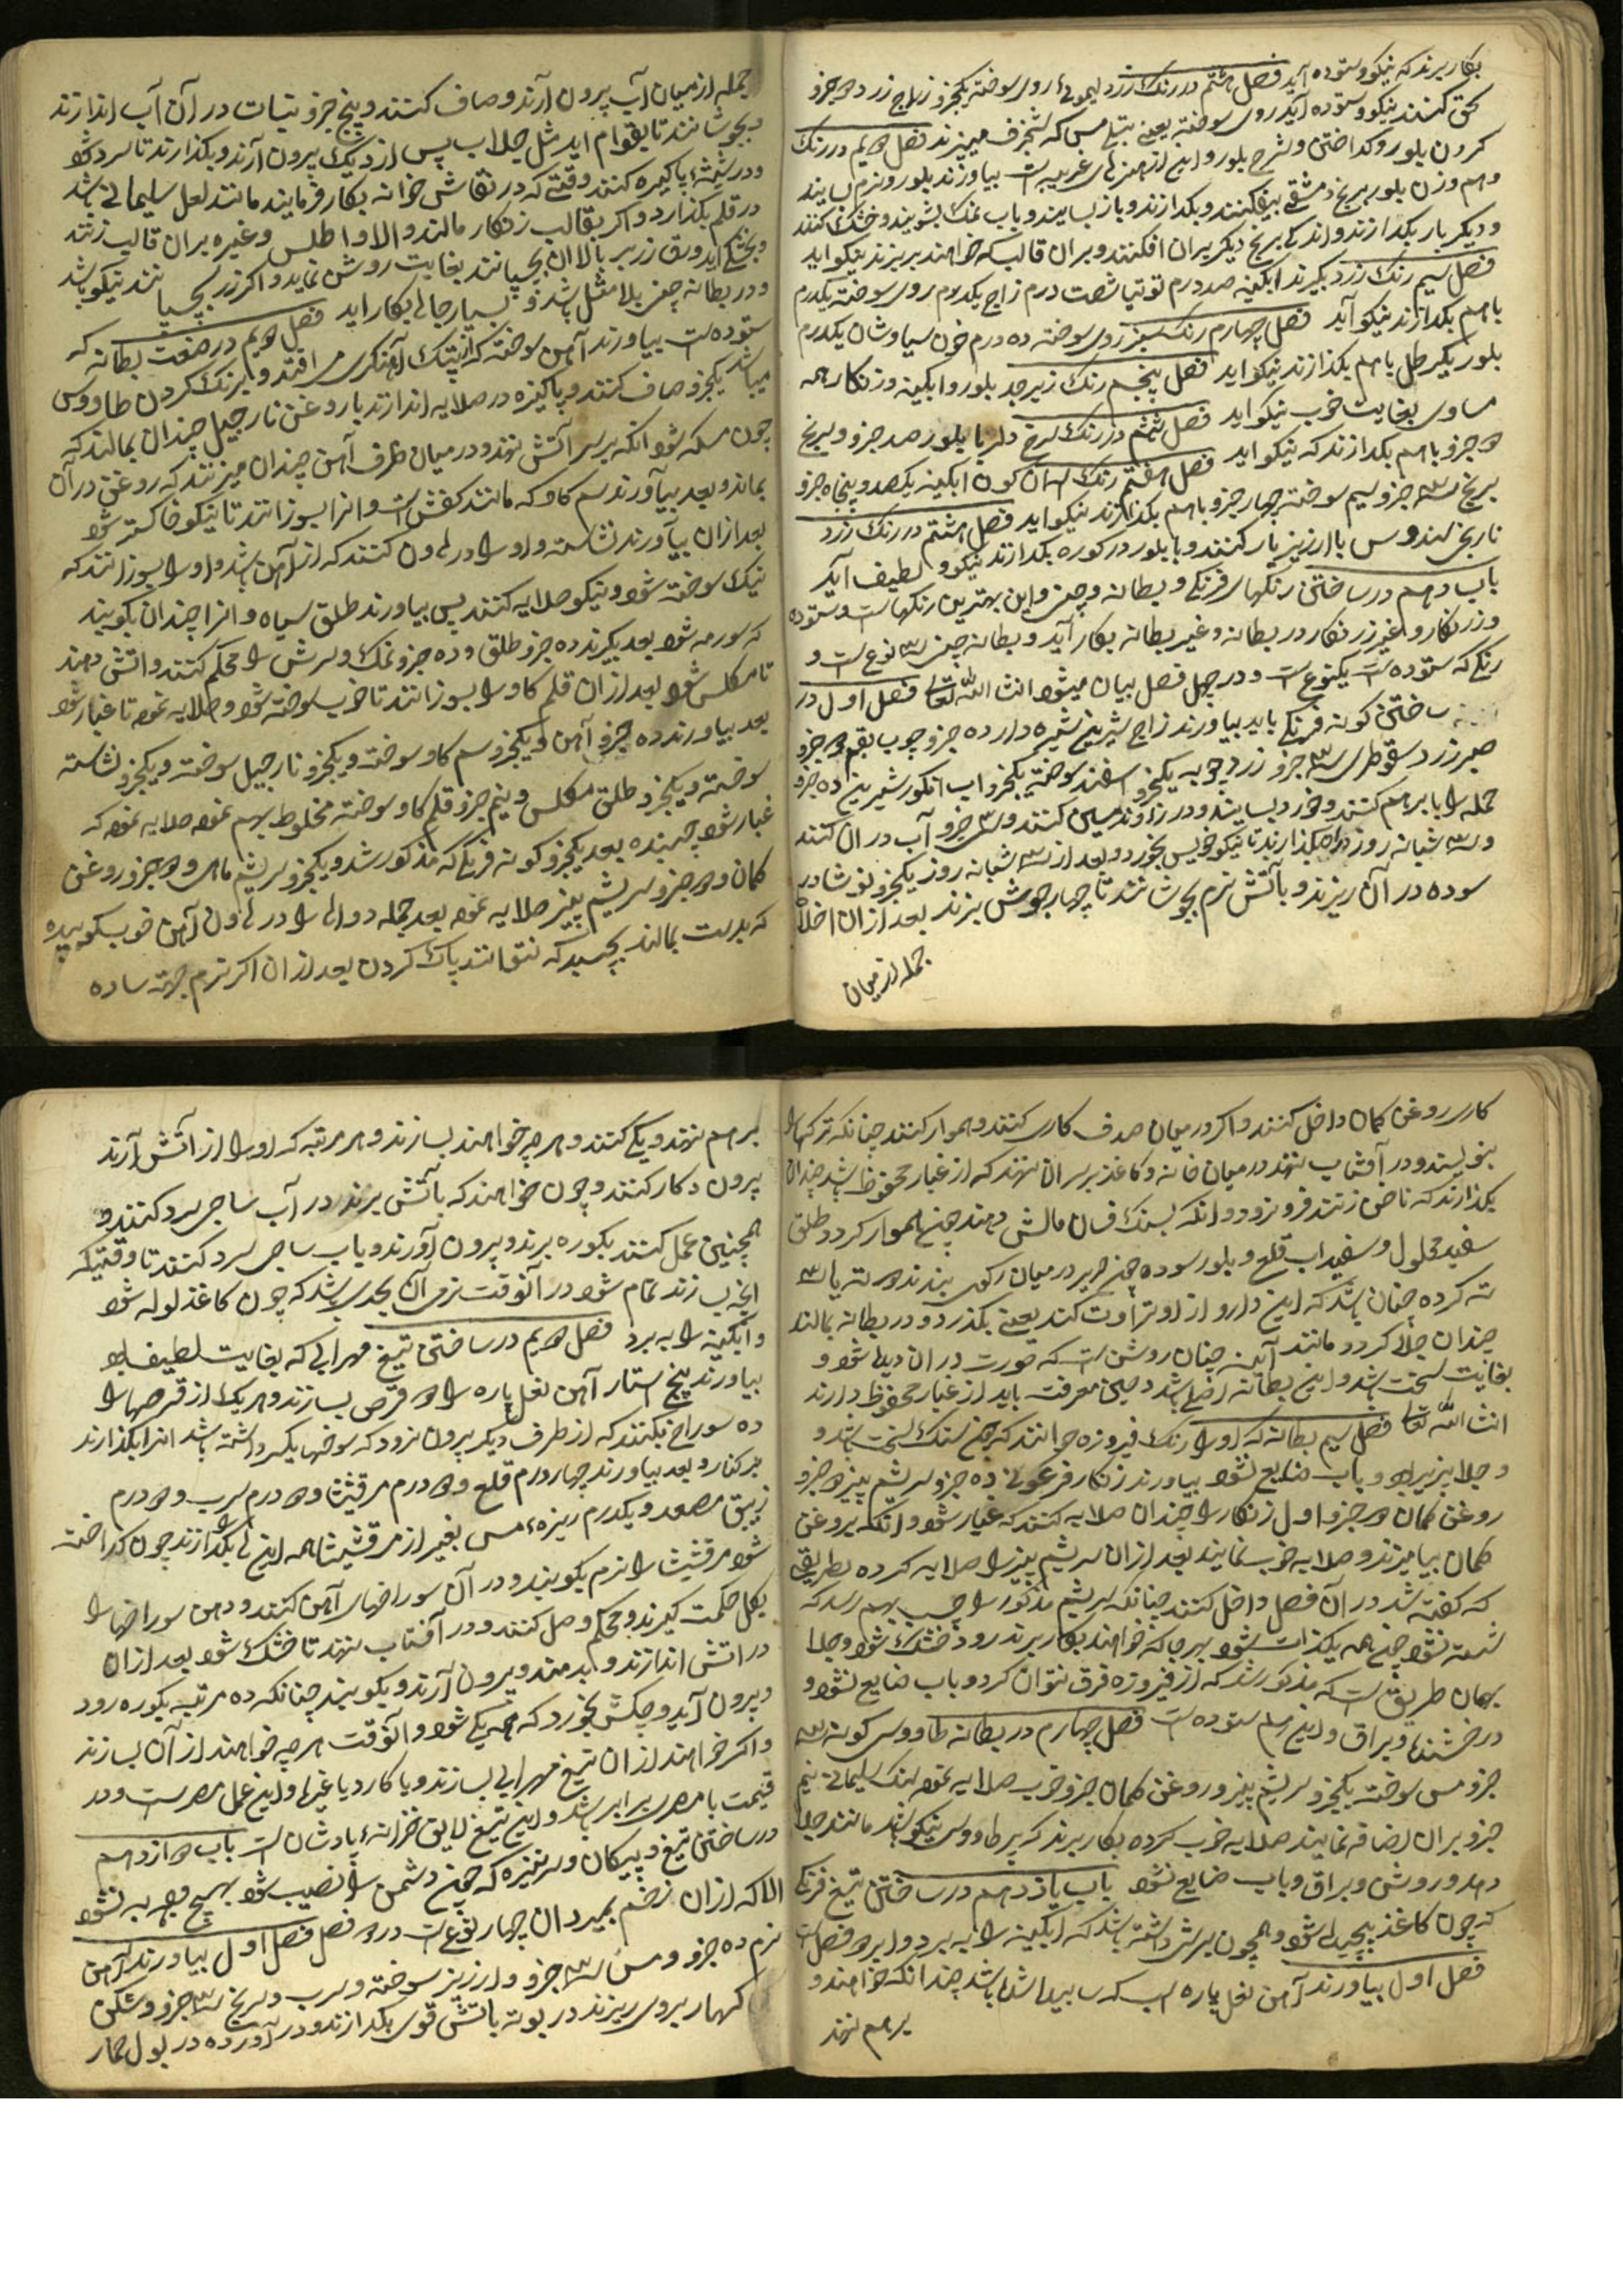 بکار برند که نیکو و ستوده آید فصل هشتم در رنک زرد لیموئی روی سوخته یکجزو زاج زرد دو جزو
سحق کنند نیکو و ستوده آید روی سوخته یعنی مس که شنجرف میپزند فصل دویم در رنک
کردن بلور و کداختن و شرح بلور و این از هنرهای غریب است بیاورند بلور و نرم بسایند
و هم وزن بلور برنج دمشقی بیفکنند و بکدازند و باز بسایند و بآب نمک بشویند و خشک کنند
و دیکر بار بکدازند و اندکی برنج دیکر بران افکنند و بران قالب که خواهند بریزند نیکو اید
فصل سیم رنک زرد بکیرند ابکینه صد درم توتیا شصت درم زاج یکدرم روی سوخته یکدرم
باهم بکدازند نیکو آید فصل چهارم رنک سبز روی سوخته ده درم خون سیاوشان یکدرم
بلور یکرطل باهم بکدازند نیکو اید فصل پنجم رنک زبرجد بلور و ابکینه و زنکار همه
مساوی بغایت خوب نیکو اید فصل ششم در رنک سرخ دلربا بلور صد جزو و سرنج
دو جزو باهم بکدازند که نیکو اید فصل هفتم رنک ابکینه یکصد و پنجاه جزو
برنج سه جزو سیم سوخته چهار جزو باهم بکدازند نیکو اید فصل هشتم در رنک زرد
نارنجی سندروس با ارزیز یار کنند و با بلور در کوره بکدازند نیکو و لطیف آید
باب دهم در ساختن رنکهای فرنکی و بطانه و چینی و این بهترین رنکهاست و ستوده
و زرنکار و غیر زرنکار در بطانه و غیر بطانه بکار آید و بطانه چینی سه نوع است و
رنکی که ستوده است یکنوع است و در چهل فصل بیان میشود انشا الله تعالی فصل اول در
ساختن کونه فرنکی باید بیاورند زاج شیرین ده جزو چوب بقم دو جزو
صبر زرد سقوطری سه جزو زردچوبه یکجزو اسفند سوخته یکجزو اب انکور شیرین ده جزو
جمله را با برهم کنند و خورد بسایند و در کنند و سی جزو آب در ان کنند
و سه شبانه روز بکذارند تا نیکو خیس بخورد و بعد از سه شبانه روز یکجزو نوشادر
سوده در آن ریزند و بآتش نرم بجوشانند تا چهار جوش بزند بعد ازان اخلاط
جمله از میان
جمله از میان آب بیرون آرند و صاف کنند و پنج جزو نبات در آن آب اندازند
و بجوشانند تا بقوام اید مثل جلاب پس از دیک بیرون آرند و بکذارند تا سرد شود
و در شیشه پاکیزه کنند وقتی که در نقاش خوانه بکار فرمایند مانند لعل سلیمانی باشد
در قلم بکذارد و اکر بقالب زنکار مالند و الا و اطلس و غیره بران قالب زنند
و بخشک اید ورق زر بر بالا ان بچسپانند بغایت روشن نماید و اکر زر بچسپانند نیکو باشد
و در بطانه چینی بلا مثل باشد و بسیار جائی بکار اید فصل دویم در صنعت بطانه که
ستوده است بیاورند آهن سوخته که از پتک آهنکری می افتد و برنک کردن طاووس
میباشد یکجزو صاف کنند و پاکیزه در صلایه اندازند با روغن نارجیل چندان بمالند که
چون مسکه شود انکه بر سر آتش نهند و در میان ظرف آهن چندان میزنند که روغن در آن
بماند و بعد بیاورند سم کاو که مانند کفش است و انرا بسوزانند تا نیکو خاکستر شود
بعد ازان بیاورند نشاسته و او را در هاون کنند که از آهن باشد و او را بسوزانند که
نیک سوخته شود و نیکو صلایه کنند پس بیاورند طلق سیاه و انرا چندان بکوبند
که سورمه شود بعد بکیرند ده جزو طلق و ده جزو نمک و سرش را محکم کنند و اتش دهند
تا مکلس شود بعد ازان قلم کاو را بسوزانند تا خوب سوخته شود و صلایه نموده تا غبار شود
بعد بیاورند ده جزو آهن و یکجزو سم کاو سوخته و یکجزو نارجیل سوخته و یکجزو نشاسته
سوخته و یکجزو طلق مکلس و نیم جزو قلم کاو سوخته مخلوط بهم نموده صلایه نموده که
غبار شود چسپیده بعد یکجزو کونه فرنکی که مذکور شد و یکجزو سریشم ماهی و دو جزو روغن
کمان و دو جزو سریشم پنیر صلایه نموده بعد جمله دوا را در هاون آهن خوب بکوبیده
که بدست بمالند بچسپد که نتوانند پاک کردن بعد ازان اکر نرم جهة ساده
کاری روغن کمان داخل کنند و اکر در میان صدف کاری کنند و هموار کنند چنانکه ترکها را
بنویسند و در آفتاب نهند در میان خانه و کاغذ بر سر ان نهند که از غبار محفوظ باشد چندان
بکذارند که ناخن زنند فرو نرود و انکه بسنک فسان مالش دهند چینی هموار کردد و طلق
سفید محلول و سفیداب قلع و بلور سوده چینی حریر در میان رکوی بندند دو ته یا سه
ته کرده چنان باشد که این دارو از او تراوت کند یعنی بکذرد و در بطانه بمالند
چندان جلا کردد مانند آینه چنان روشن است که صورت در ان دیده شود و
بغایت سخت باشد و این بطانه اصلی باشد و حین معرفت باید از غبار محفوظ دارند
انشا الله تعالی فصل سیم بطانه که او را رنک فیروزه خوانند که چینی سنک سخت باشد و
و جلا پزیر بود و بآب ضایع نشود بیاورند زنکار فرعونی ده جزو سریشم پنیر دو جزو
روغن کمان دو جزو اول زنکار را چندان صلایه کنند که غبار شود و انکه بروغن
کمان بیامیزند و صلایه خوب نمایند بعد ازان سریشم پنیر را صلایه کرده بطریقی
که کفته شد در آن فصل داخل کنند چنانکه سریشم مذکور را چسب بهم رسد که
شسته نشود چینی همه یکذات شود بهر جا که خواهند بکار برند زود خشک شود و جلا
بهمان طریق است که مذکور شد که از فیروزه فرق نتوان کرد و بآب ضایع نشود و
درخشنده و براق و این هم ستوده است فصل چهارم در بطانه طاووسی کونه سه
جزو مس سوخته یکجزو سریشم پنیر و روغن کمان جزو خوب صلایه نموده سنک سلیمانی نیم
جزو بران اضافه نمایند صلایه خوب کرده بکار برند که پر طاووسی نیکو باشد مانند جلا
دهد و روشن و براق و بآب ضایع نشود باب یازدهم در ساختن تیغ فرنکی
که چون کاغذ پیچیده شود و همچون برش داشته باشد که ابکینه را ببرد و او بر دو فصل است
فصل اول بیاورند آهن نعل پاره اسب که سابیده شده باشد چندانکه خواهند و
برهم نهند
برهم نهند و یکی کنند و هر چه خواهند بسازند و هر مرتبه که او را از آتش آرند
بیرون دکار کنند و چون خواهند که بآتش برند در آب ساجی سرد کنند و
همچنین عمل کنند بکوره برند و بیرون آورند و بآب ساجی سرد کنند تا وقتیکه
انچه بسازند تمام شود در آنوقت نرمی آن بحدی باشد که چون کاغذ لوله شود
و آبکینه را ببرد فصل دویم در ساختن تیغ مهرابی که بغایت لطیف بود
بیاورند پنج استار آهن نعل پاره را دو قرص بسازند و هر یک از قرصها را
ده سوراخ بکنند که از طرف دیکر بیرون نرود که سوخها یکسر داشته باشد انرا بکذارند
بر کنار و بعد بیاورند چهار درم قلع و دو درم مرقشیثا و دو درم سرب و دو درم
زیبق مصعد و یکدرم ریزه مس بغیر از مرقشیثا همه اینها را بکدازند چون کداخته
شود مرقشیثا را نرم بکوبند و در آن سوراخهای آهن کنند و دهن سوراخها را
بکل حکمت کیرند و محکم وصل کنند و در آفتاب نهند تا خشک شود بعد ازان
در اتش اندازند و بدمند و بیرون آرند و بکوبند چنانکه ده مرتبه بکوره رود
و بیرون آید و چکش بخورد که همه یکی شود و آنوقت هر چه خواهند از آن بسازند
و اکر خواهند ازان تیغ مهرابی بسازند و یا کارد یا غیرها و این عمل مصر است و در
قیمت با مصری برابر باشد و این تیغ لایق خزانه پادشان است باب دوازدهم
در ساختن تیغ و پیکان و سرنیزه که چینی دشمن را نصیب شود بهیچ وجه به نشود
الا که ازان زخم بمیرد ان چهار نوع است در دو فصل فصل اول بیاورند آهن
نرم ده جزو و مس سه جزو و ارزیز سوخته و سرب و سرنج سه جزو و شکن
کبهار بروی ریزند در بوته باتش قوی بکدازند و در آورده در بول حمار